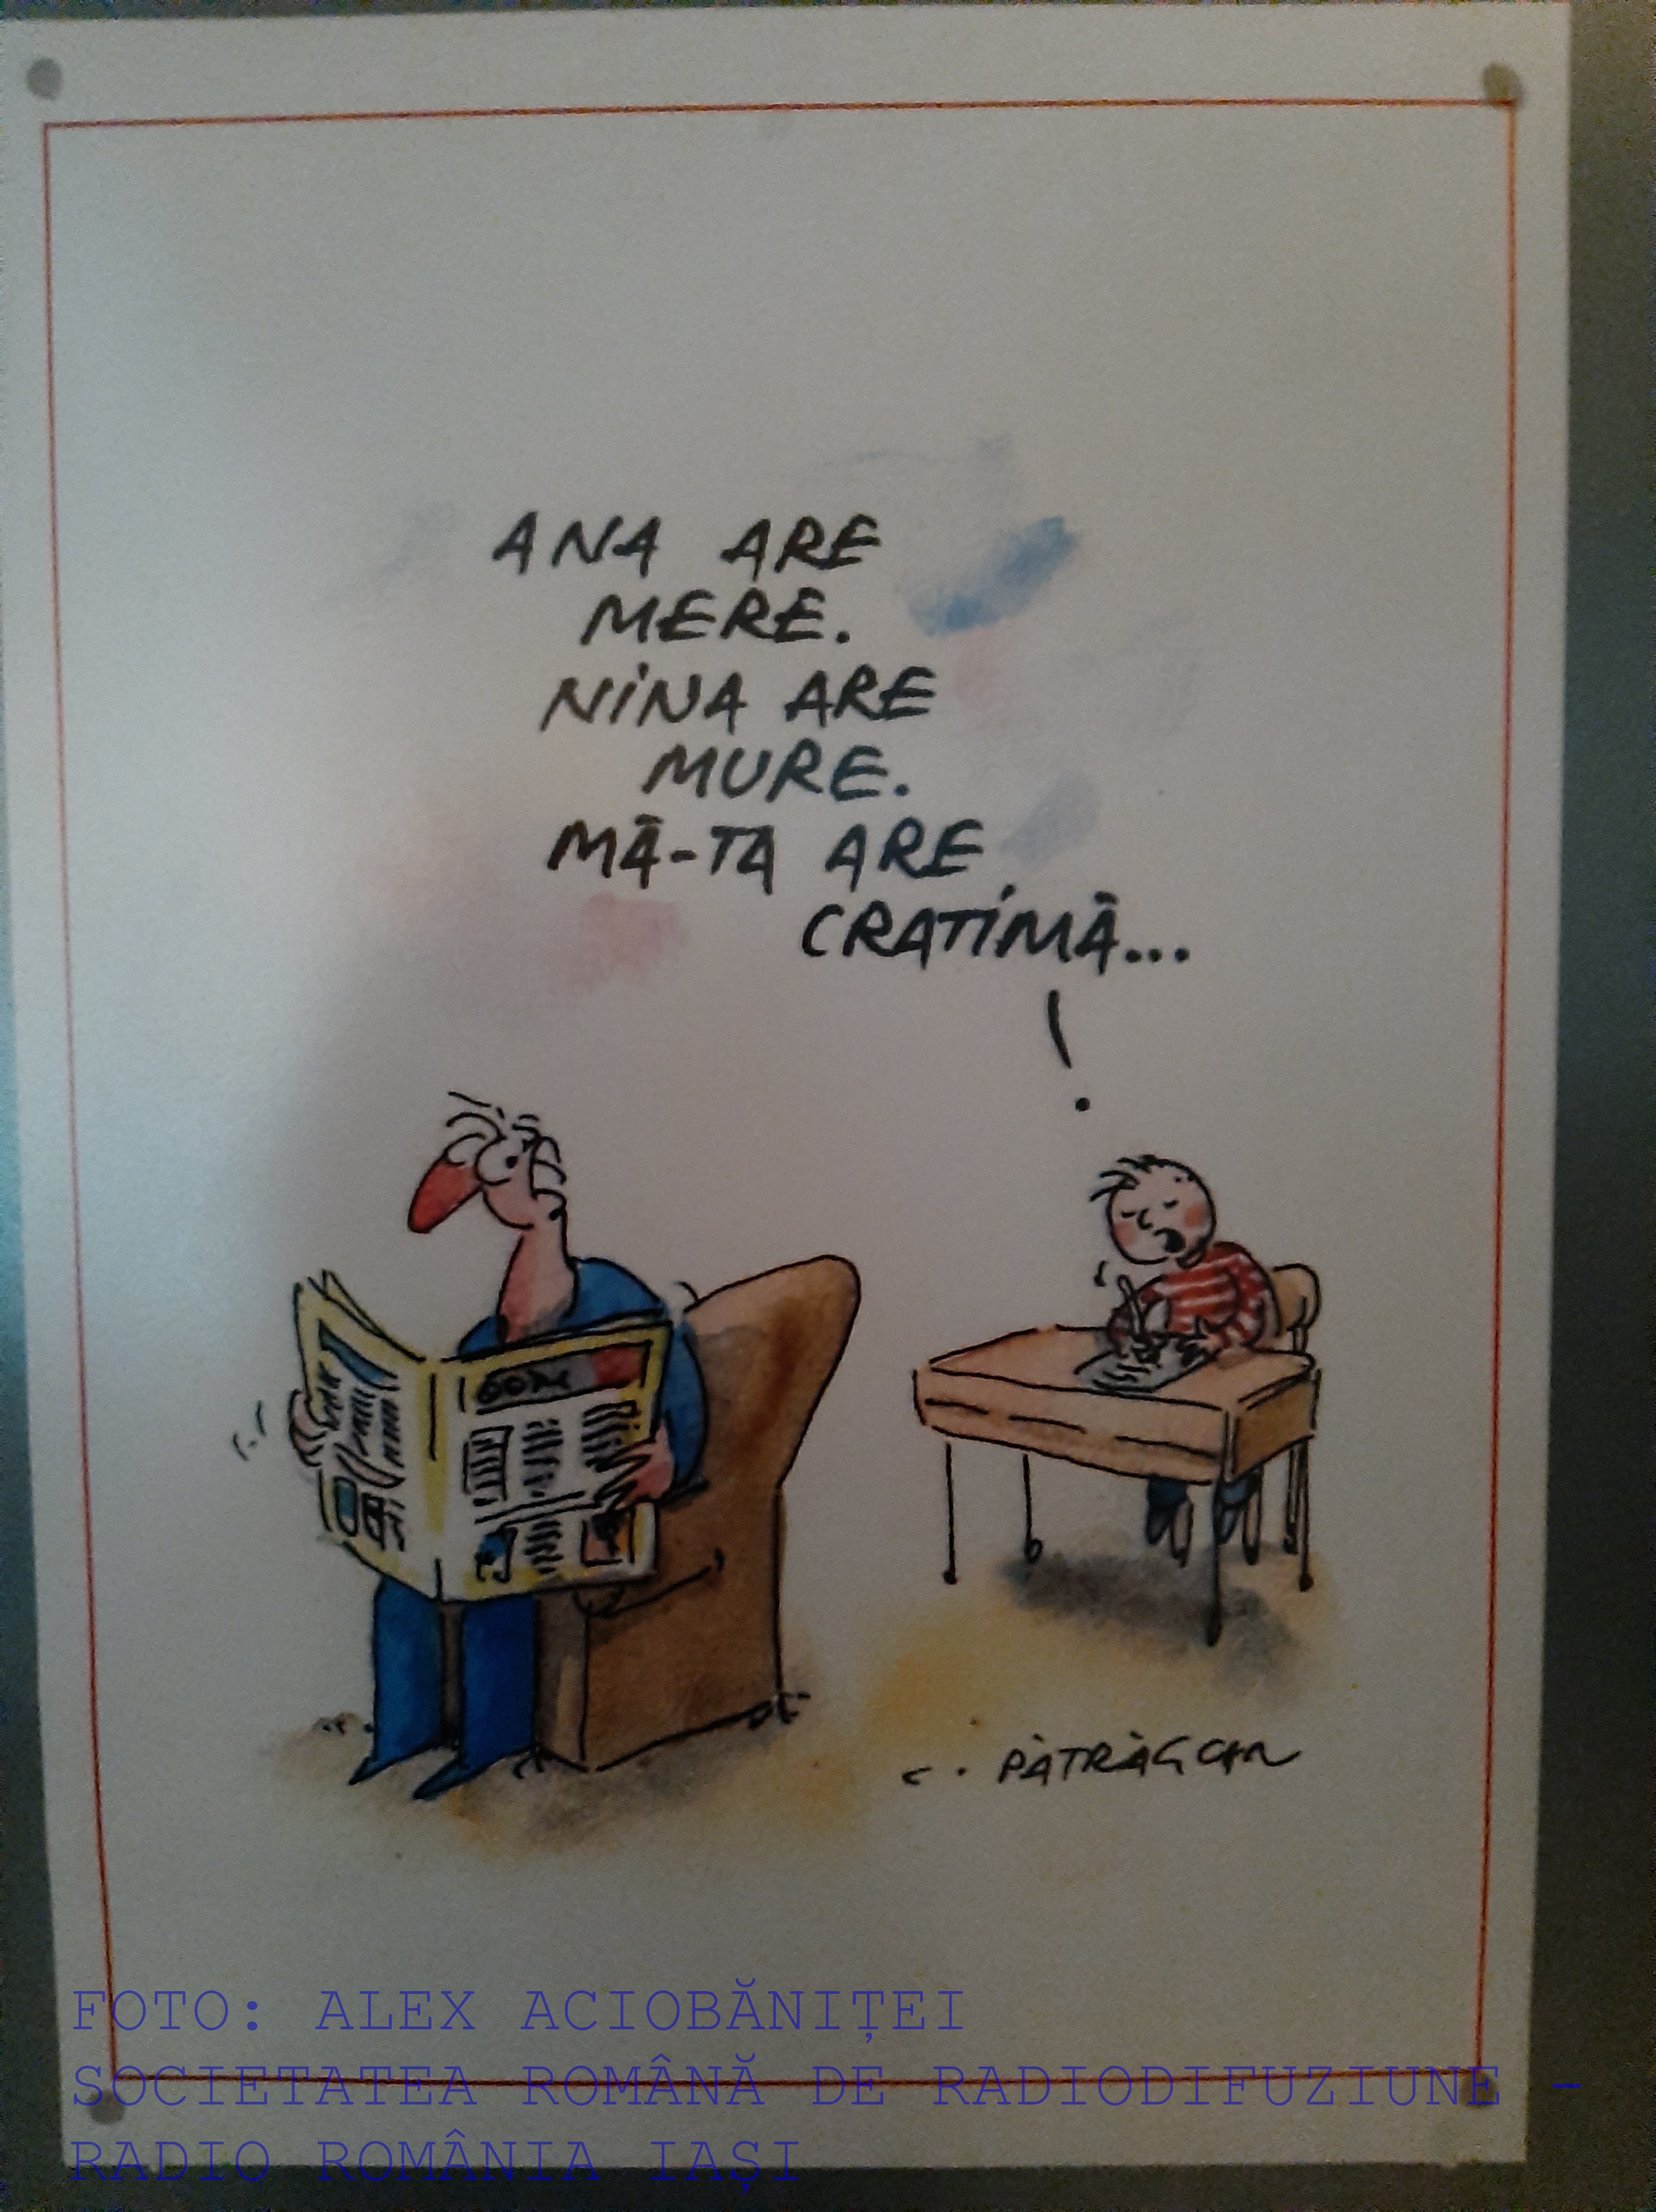 ANA ARE
MERE.
NINA ARE
MURE.
MĂ-TA ARE
CRATIMĂ...
FOTO: ALEX ACIOBĂNIȚEI
SOCIETATEA ROMÂNĂ DE RADIODIFUZIUNE -
RADIO ROMÂNIA IAȘI